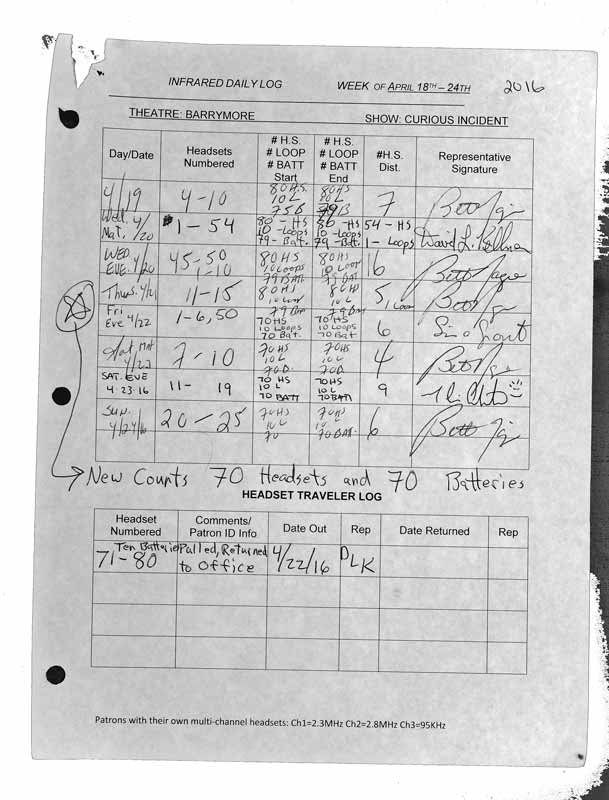 INFRARED DAILY LOG WEEK OF APRIL 18TH – 24TH 2016
THEATRE: BARRYMORE SHOW: CURIOUS INCIDENT
Day/Date Headsets Numbered # H.S. # LOOP # BATT Start # H.S. # LOOP # BATT End #H.S. Dist. Representative Signature
4/19 4-10 80 H.S. 10 L 75 B 80 HS 10 L 79 B 7
Wed. Mat. 4/20 #1-54 80-HS 10-Loops 79-Bat. 80-HS 10-Loops 79-Bat. 54-HS 1-Loops David L.
WED EVE. 4/20 45-50 1-10 80 HS 10 Loops 79 BATT 80 HS 10 Loop 79 BAT 16
Thurs. 4/21 11-15 80 HS 10 Loop 79 Bat 80 HS 10 L 79 Bat 5, 1 Loop
Fri Eve 4/22 1-6, 50 70 HS 10 Loops 70 Bat. 70 HS 10 Loops 70 Bat. 6
Sat Mat 4/23 7-10 70 HS 10 L 70 B. 70 HS 10 L 70 B 4
SAT. EVE 4.23.16 11- 19 70 HS 10 L 70 BATT 70 HS 10 L 70 BATT 9
Sun. 4/24/16 20-25 70 HS 10 L 70 70 HS 10 L 70 BAT. 6
New Counts 70 Headsets and 70 Batteries
HEADSET TRAVELER LOG
Headset Numbered Comments/ Patron ID Info Date Out Rep Date Returned Rep
71-80 Ten Batteries Pulled, Returned to Office 4/22/16 DLK
Patrons with their own multi-channel headsets: Ch1=2.3MHz Ch2=2.8MHz Ch3=95KHz